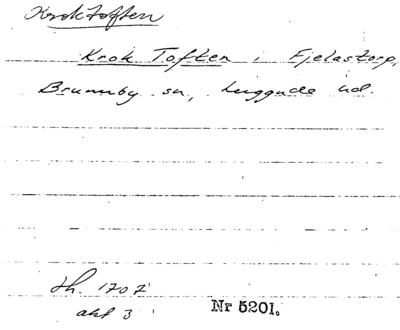 Kroktoften
Krok Toften i Fjelastorp,
Brunnby sn, Luggude hd.
lh. 1707
akt 3
Nr 5201.